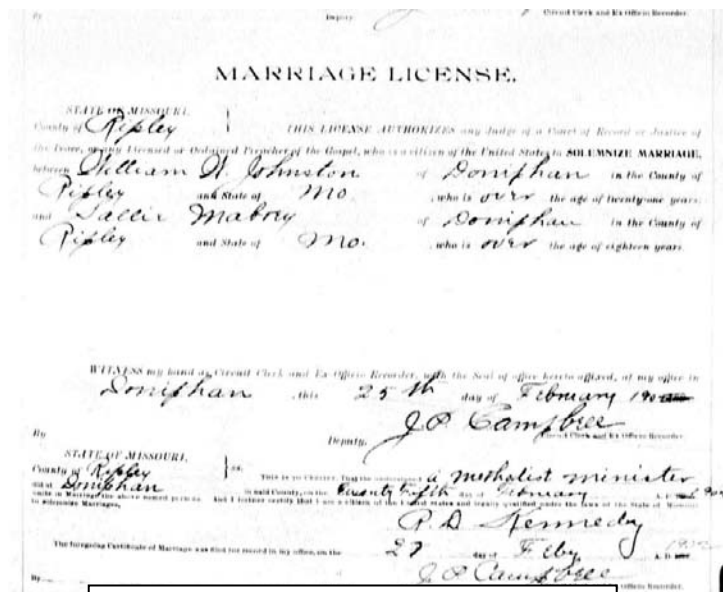 By Deputy. Circuit Clerk and Ex Officio Recorder.
MARRIAGE LICENSE.
STATE OF MISSOURI,
County of Ripley } THIS LICENSE AUTHORIZES any Judge of a Court of Record or Justice of
the Peace, or any Licensed or Ordained Preacher of the Gospel, who is a citizen of the United States, to SOLEMNIZE MARRIAGE,
between William W. Johnston of Doniphan in the County of
Ripley and State of Mo , who is over the age of twenty-one years
and Sallie Mabrey of Doniphan in the County of
Ripley and State of Mo. , who is over the age of eighteen years.
WITNESS my hand as Circuit Clerk and Ex Officio Recorder, with the Seal of office hereto affixed, at my office in
Doniphan , this 25th day of February 190
J.P. Campbell
Circuit Clerk and Ex Officio Recorder
By Deputy.
STATE OF MISSOURI,
County of Ripley } ss. This is to Certify, That the undersigned a Methodist minister
did at Doniphan in said County, on the twenty fifth day of February A. D. 190
unite in Marriage the above named persons. And I further certify that I am a citizen of the United States and legally qualified under the laws of the State of Missouri
to solemnize Marriages,
R D Kennedy
The foregoing Certificate of Marriage was filed for record in my office, on the 27 day of Feby A. D.
J P Campbell
By Officio Recorder.